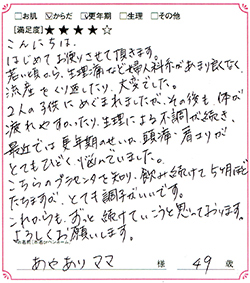 □お肌 ☑からだ □更年期 □生理 □その他
[満足度]★★★★☆
こんにちは。
はじめてお便りさせて頂きます。
若い頃から、生理痛など婦人科系があまり良くなく
流産をくり返したり、大変でした。
2人の子供にめぐまれましたが、その後も、体が
疲れやすかったり、生理による不調が続き、
最近では更年期のせいか、頭痛・肩コリが
とてもひどく悩んでいました。
こちらのプラセンタを知り、飲み続けて5ヶ月ほど
たちますが、とても調子がいいです。
これからも、ずっと続けていこうと思っております。
よろしくお願いします。
あやありママ 様 49 歳